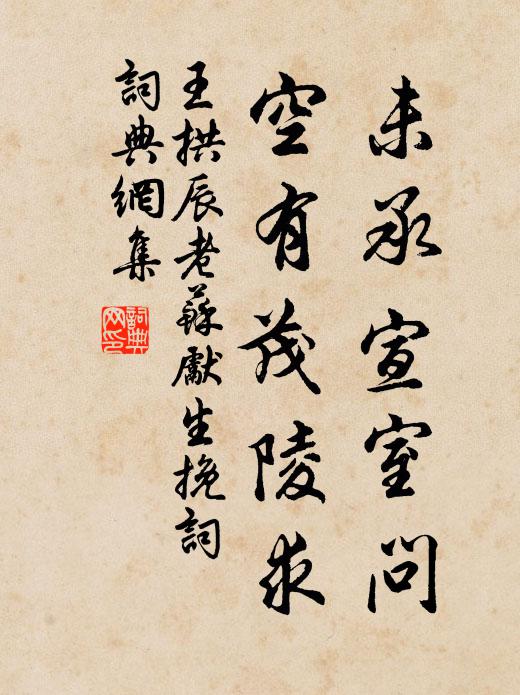 未承宣室問
空有茂陵求
王拱辰老蘇獻生挽詞
詞典網集
詞典
网印